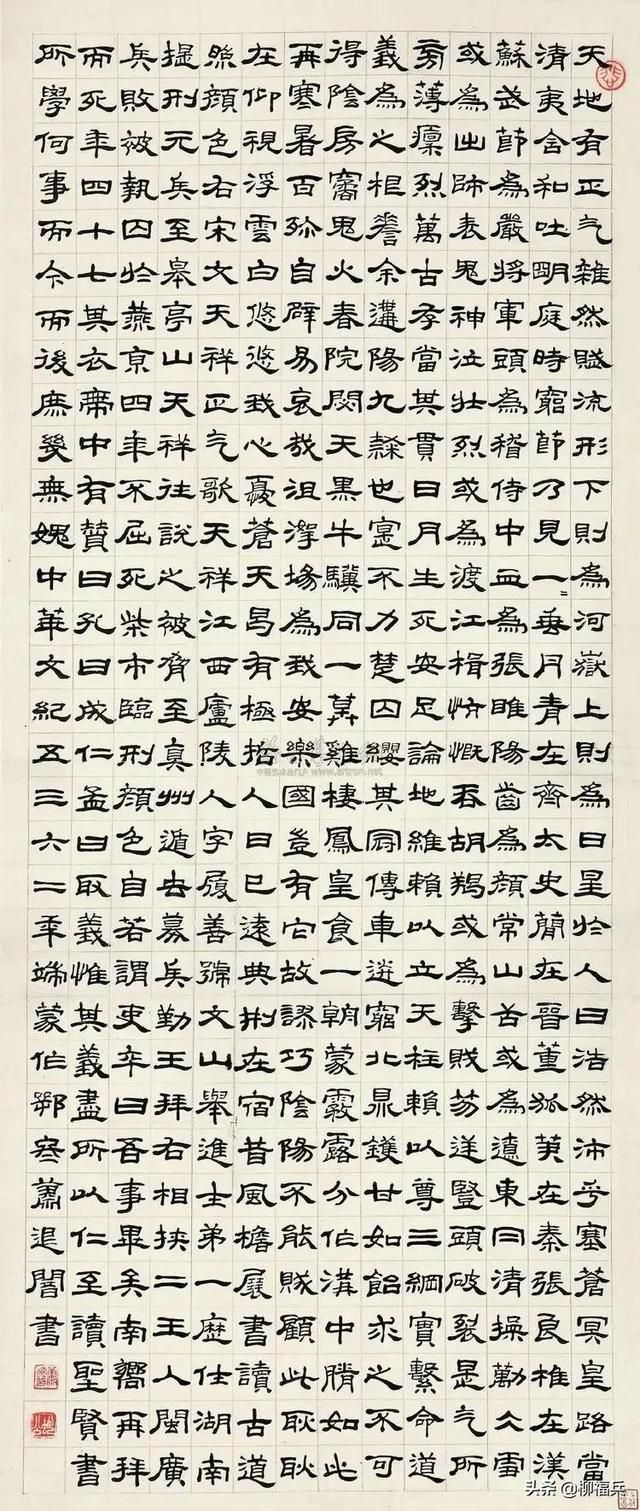 天地有正气雜然賦流形下則為河嶽上則為日星於人曰浩然沛乎塞蒼冥皇路當
清夷含和吐明庭時窮節乃見一=垂丹青在齊太史簡在晉董狐筆在秦張良椎在漢
蘇武節為嚴將軍頭為嵇侍中血為張睢陽齒為顏常山舌或為遼東帽清操勵冰雪
或為出師表鬼神泣壯烈或為渡江楫慷慨吞胡羯或為擊賊笏逆豎頭破裂是气所
旁薄凜烈萬古存當其貫日月生死安足論地維賴以立天柱賴以尊三綱實繫命道
義為之根嗟余遘陽九隸也寔不力楚囚纓其冠傳車送窮北鼎鑊甘如飴求之不可
得陰房鬼火春院閟天黑牛驥同一皁雞棲鳳皇食一朝蒙霧露分作溝中瘠如此
再寒暑百沴自辟易哀哉沮洳場為我安樂國豈有它故謬巧陰陽不能賊顧此耿耿
在仰視浮雲白悠悠我心憂蒼天曷有極哲人日已遠典刑在宿昔風檐展書讀古道
照顏色右宋文天祥正气歌天祥江西廬陵人字履善號文山舉進士弟一歷仕湖南
提刑元兵至皋亭山天祥往說之被脅至真州遁去募兵勤王拜右相挾二王入閩廣
兵敗被執囚於燕京四年不屈死柴市臨刑顏色自若謂吏卒曰吾事畢矣南嚮再拜
而死年四十七其衣帶中有贊曰孔曰成仁孟曰取義惟其義盡所以仁至讀聖賢書
所學何事而今而後庶幾無媿中華文紀五三六二年端蒙作鄂寒蕭退闇書
www.artron.net
头条 @柳福兵